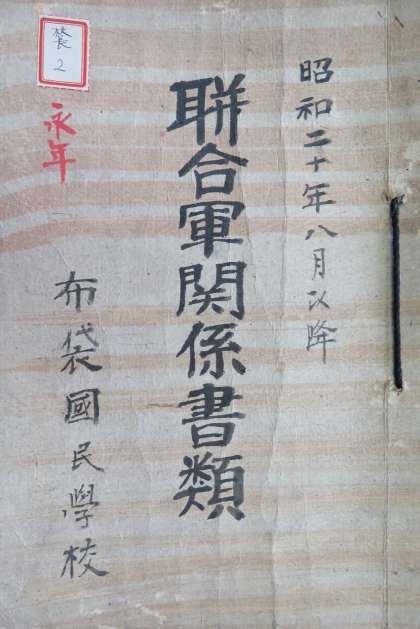 昭和二十年八月以降
聯合軍関係書類
布袋國民學校
永年
2